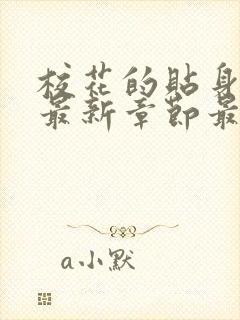 校花的贴身
最新章节最
a小默